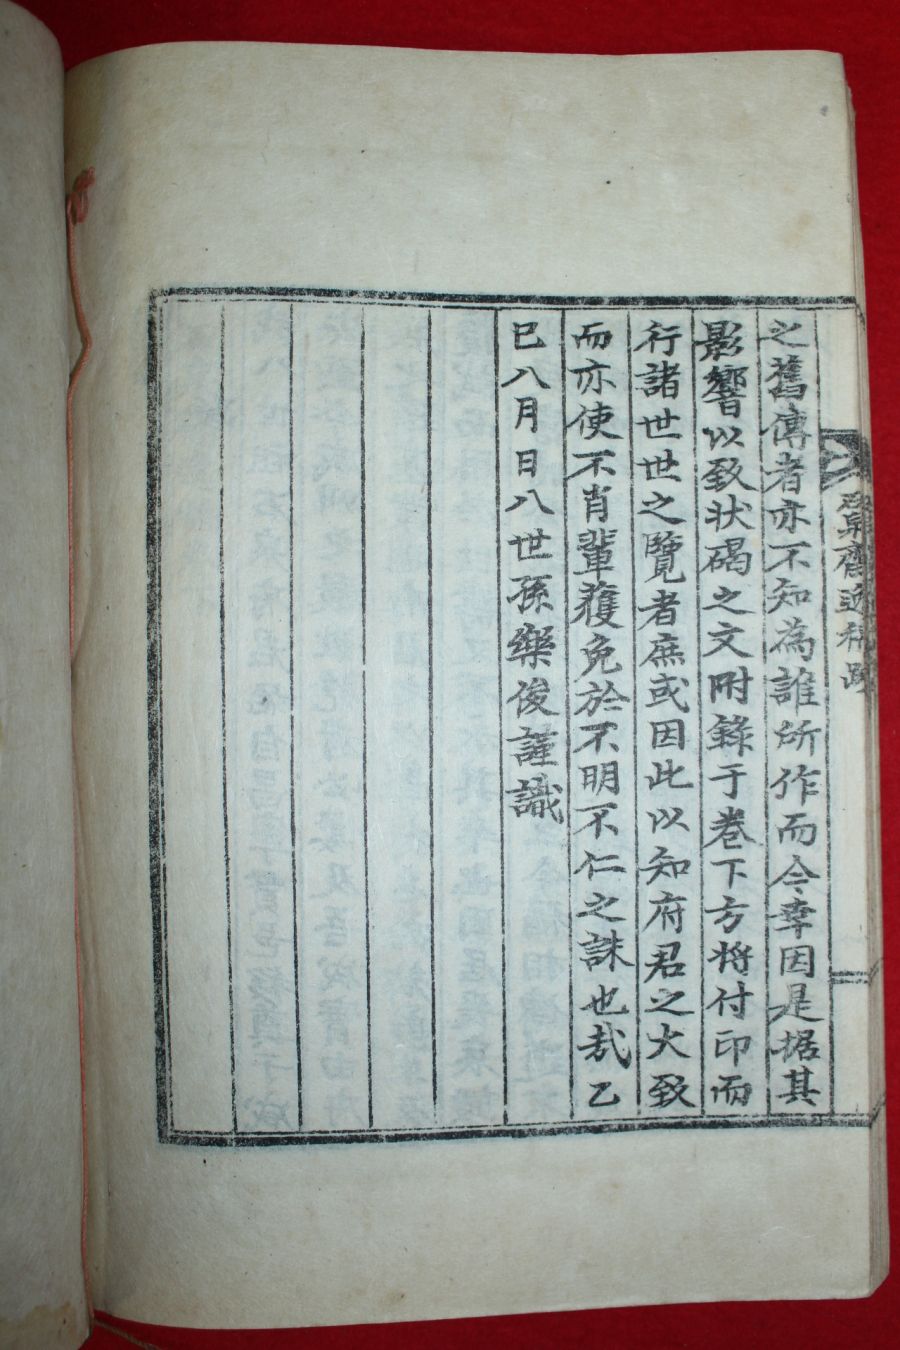 之舊傳者亦不知為誰所作而今幸因是据其
影響以致状碣之文附錄于卷下方将付印而
行諸世世之覽者庶或因此以知府君之大致
而亦使不肖輩獲免於不明不仁之誅也哉乙
巳八月日八世孫樂俊謹識
齋逸稿跋